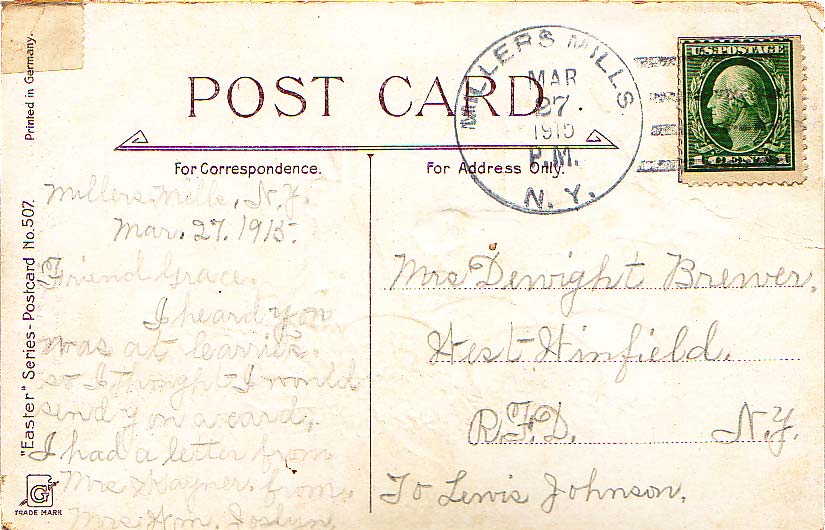 Printed in Germany.
"Easter" Series-Postcard No. 507.
TRADE MARK
POST CARD.
For Correspondence.
For Address Only.
MILLERS MILLS
MAR
27
1915
P.M.
N. Y.
U.S. POSTAGE
1 CENT 1
Millers Mills, N.Y.
Mar. 27. 1915.
Friend Grace.
I heard you
was at Carrie's.
so I thought I would
send you a card.
I had a letter from
Mrs Kayner. from.
Mrs Wm. Joslyn
Mrs Dewight Brewer.
West Winfield.
R.F.D. N.Y.
To Lewis Johnson.